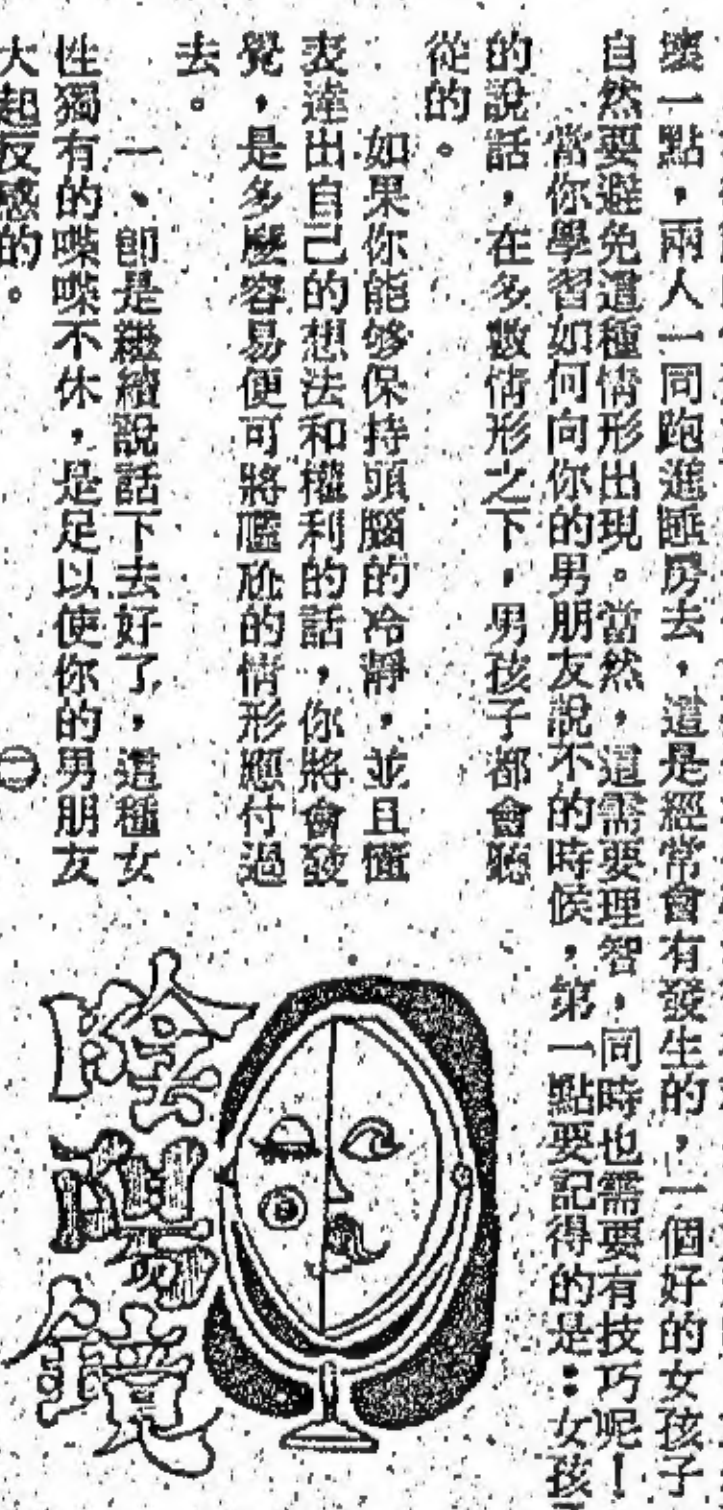 壞一點，兩人一同跑進睡房去，這是經常會有發生的，一個好的女孩子
自然要避免這種情形出現。當然，這需要理智，同時也需要有技巧呢！
當你學習如何向你的男朋友說不的時候，第一點要記得的是：女孩
的說話，在多數情形之下，男孩子都會聽
從的。
如果你能够保持頭腦的冷靜，並且懂
表達出自己的想法和權利的話，你將會發
覺，是多麼容易便可將尷尬的情形應付過
去。
一、卽是繼續說話下去好了，這種女
性獨有的喋喋不休，是足以使你的男朋友
大起反感的。
㊁
陰陽鏡